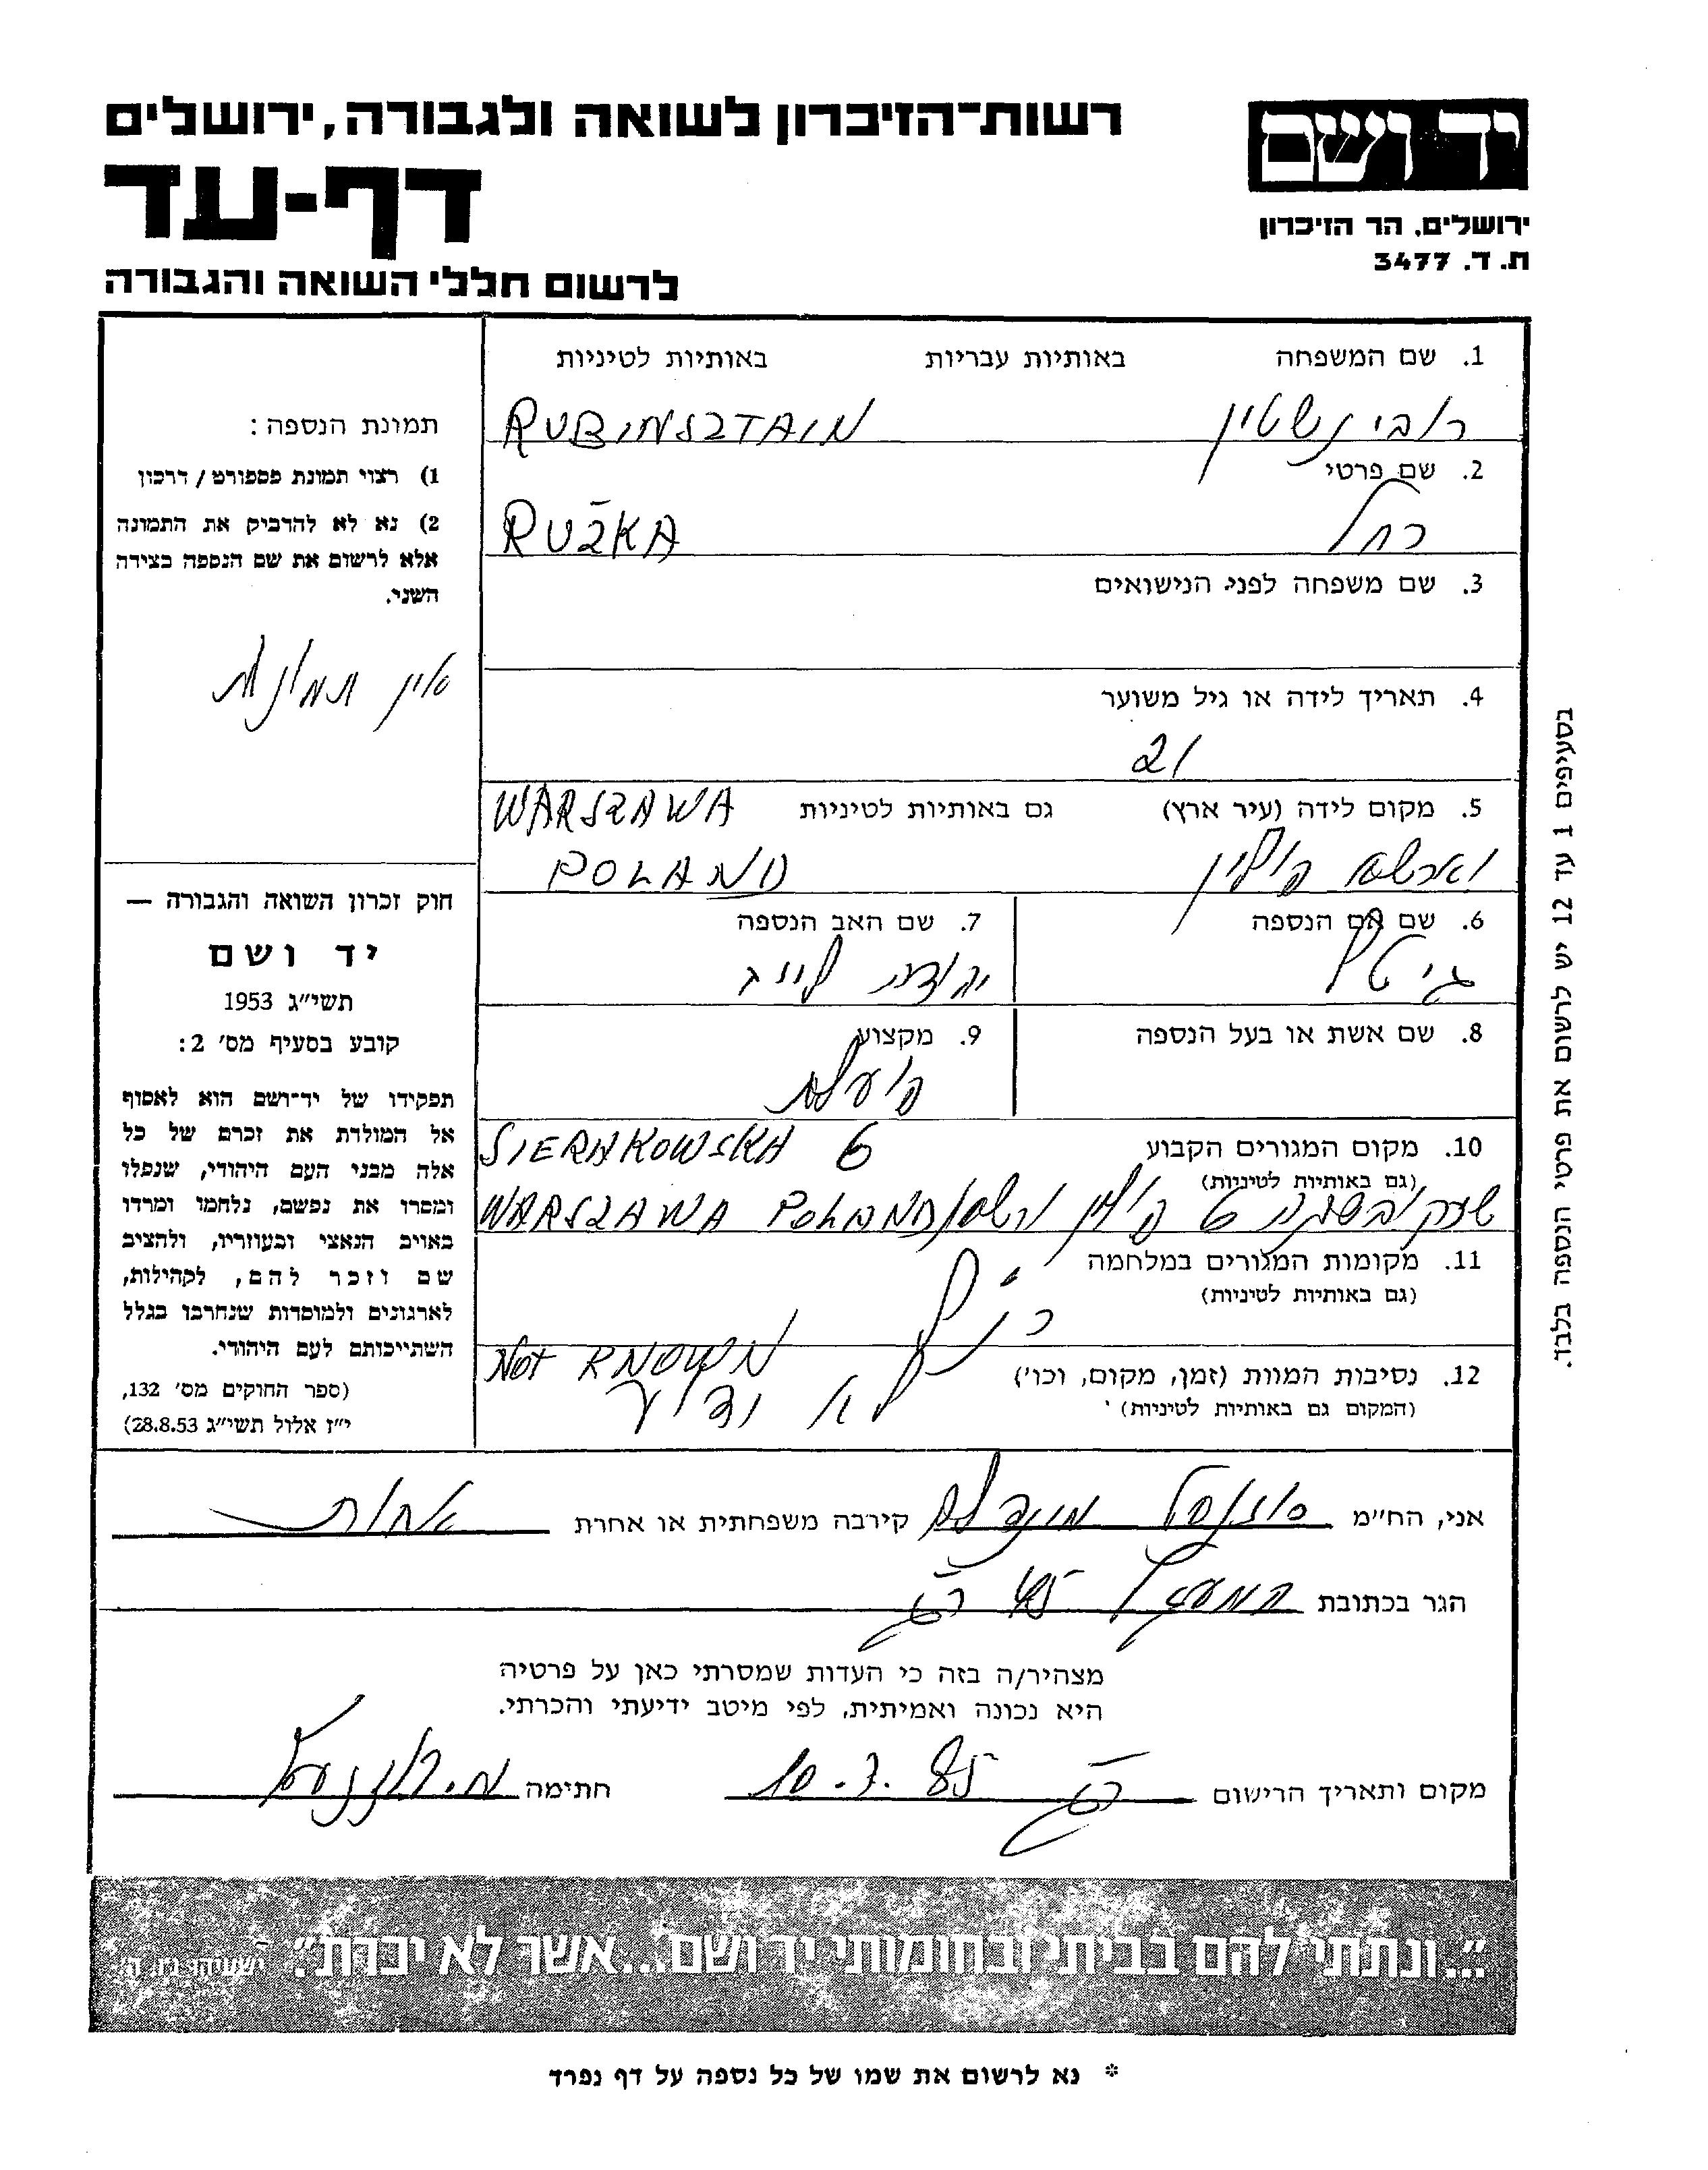 רשות־הזיכרון לשואה ולגבורה, ירושלים
דף-עד
לרשום חללי השואה והגבורה
יד ושם
ירושלים, הר הזיכרון
ת. ד. 3477
1. שם המשפחה באותיות עבריות באותיות לטיניות
רובינשטין RUBINSZTAIN
2. שם פרטי
רחל RUŽKA
3. שם משפחה לפני הנישואים
4. תאריך לידה או גיל משוער
21
5. מקום לידה (עיר ארץ) גם באותיות לטיניות WARSZAWA
וארשה פולין POLAND
6. שם אם הנספה
גיטל
7. שם האב הנספה
יהודה לייב
8. שם אשת או בעל הנספה
9. מקצוע
פועלת
10. מקום המגורים הקבוע SIERAKOWSKA 6
(גם באותיות לטיניות)
6 פולין WARSZAWA POLAND
11. מקומות המגורים במלחמה
(גם באותיות לטיניות)
כנ"ל
12. נסיבות המוות (זמן, מקום, וכו') NOT KNOWN
(המקום גם באותיות לטיניות) לא ידוע
תמונת הנספה:
1) רצוי תמונת פספורט / דרכון
2) נא לא להדביק את התמונה
אלא לרשום את שם הנספה בצידה
השני.
אין תמונות
חוק זכרון השואה והגבורה —
יד ושם
תשי"ג 1953
קובע בסעיף מס' 2:
תפקידו של יד־ושם הוא לאסוף
אל המולדת את זכרם של כל
אלה מבני העם היהודי, שנפלו
ומסרו את נפשם, נלחמו ומרדו
באויב הנאצי ובעוזריו, ולהציב
שם וזכר להם, לקהילות,
לארגונים ולמוסדות שנחרבו בגלל
השתייכותם לעם היהודי.
(ספר החוקים מס' 132,
י"ז אלול תשי"ג 28.8.53)
בסעיפים 1 עד 12 יש לרשום את פרטי הנספה בלבד.
אני, הח"מ קירבה משפחתית או אחרת אחות
הגר בכתובת 45
מצהיר/ה בזה כי העדות שמסרתי כאן על פרטיה
היא נכונה ואמיתית, לפי מיטב ידיעתי והכרתי.
מקום ותאריך הרישום 10.7.85 חתימה
"...ונתתי להם בביתי ובחומותי יד ושם...אשר לא יכרת". ישעיהו נו, ה
* נא לרשום את שמו של כל נספה על דף נפרד